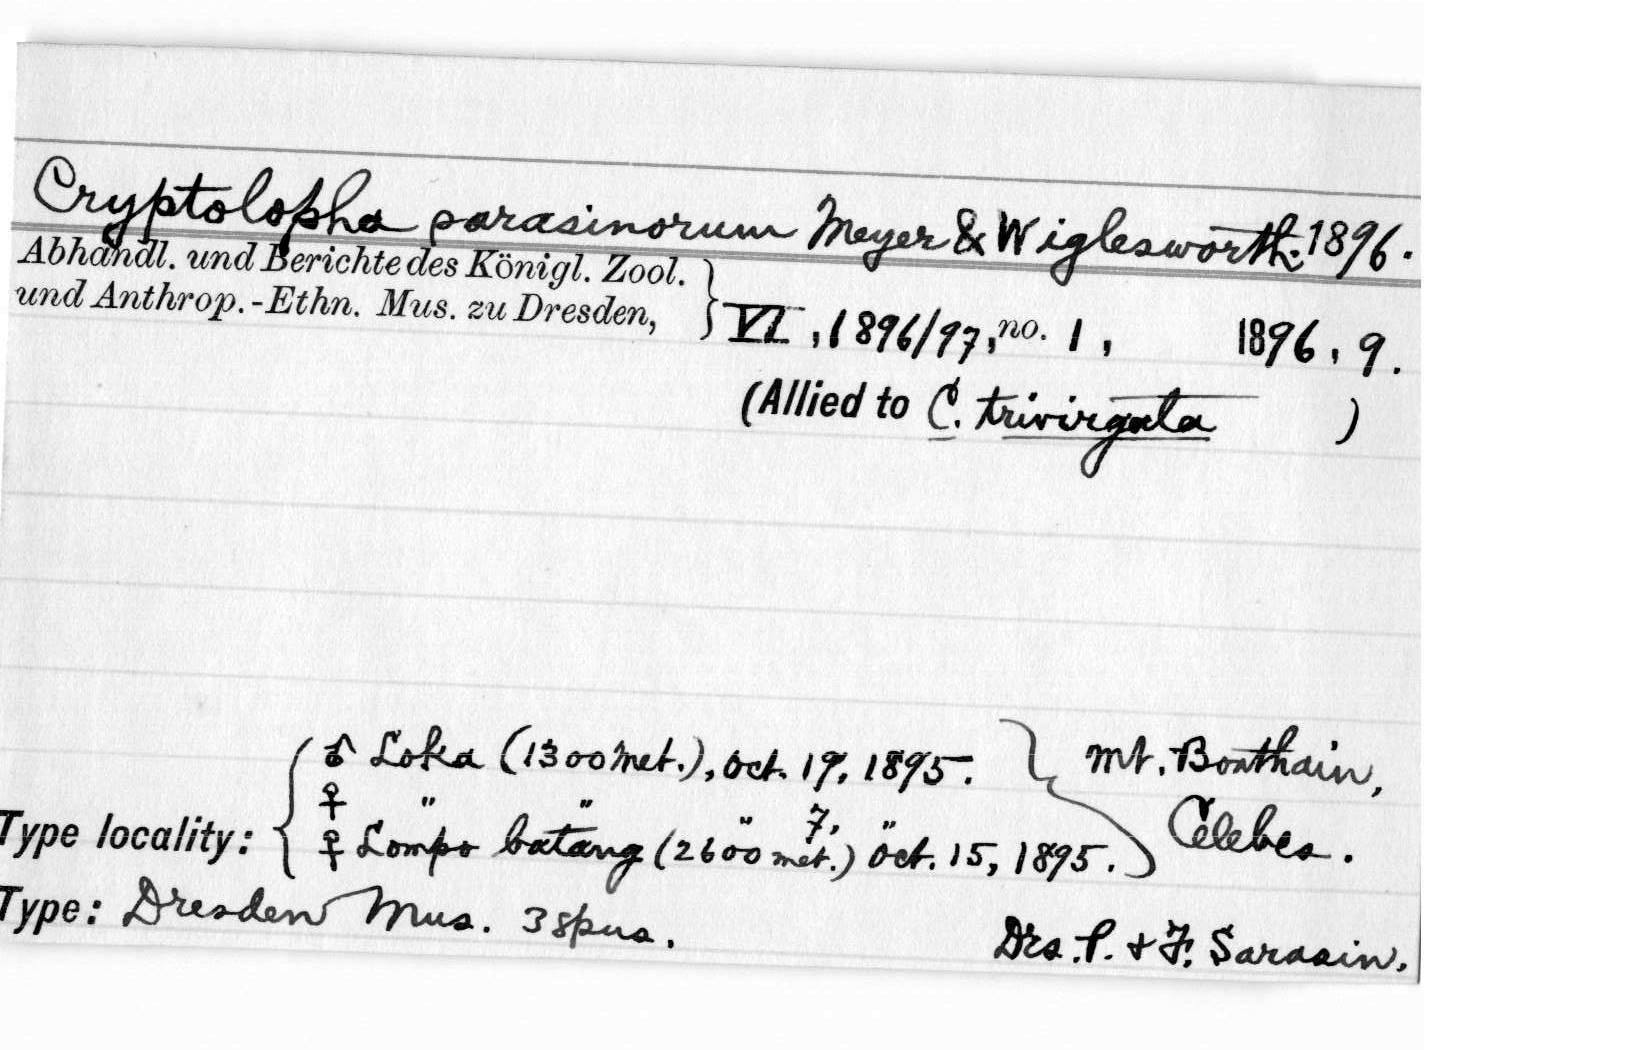 Cryptolopha sarasinorum Meyer & Wiglesworth. 1896.
Abhandl. und Berichte des Königl. Zool.
und Anthrop.-Ethn. Mus. zu Dresden, } VI, 1896/97, no. 1, 1896, 9.
(Allied to C. trivirgata )
♂ Loka (1300 met.), Oct. 19, 1895. } Mt. Bonthain,
♀ " " " 7, "
Type locality: { ♀ Lompo batang (2600 met.) Oct. 15, 1895. Celebes.
Type: Dresden Mus. 3 spns. Drs. P. & F. Sarasin.